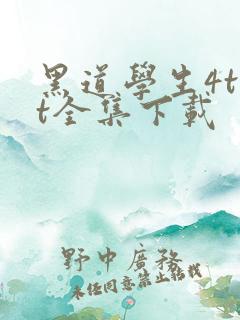 黑道學生4t
t全集下載
野中廣務
未经同意禁止转载